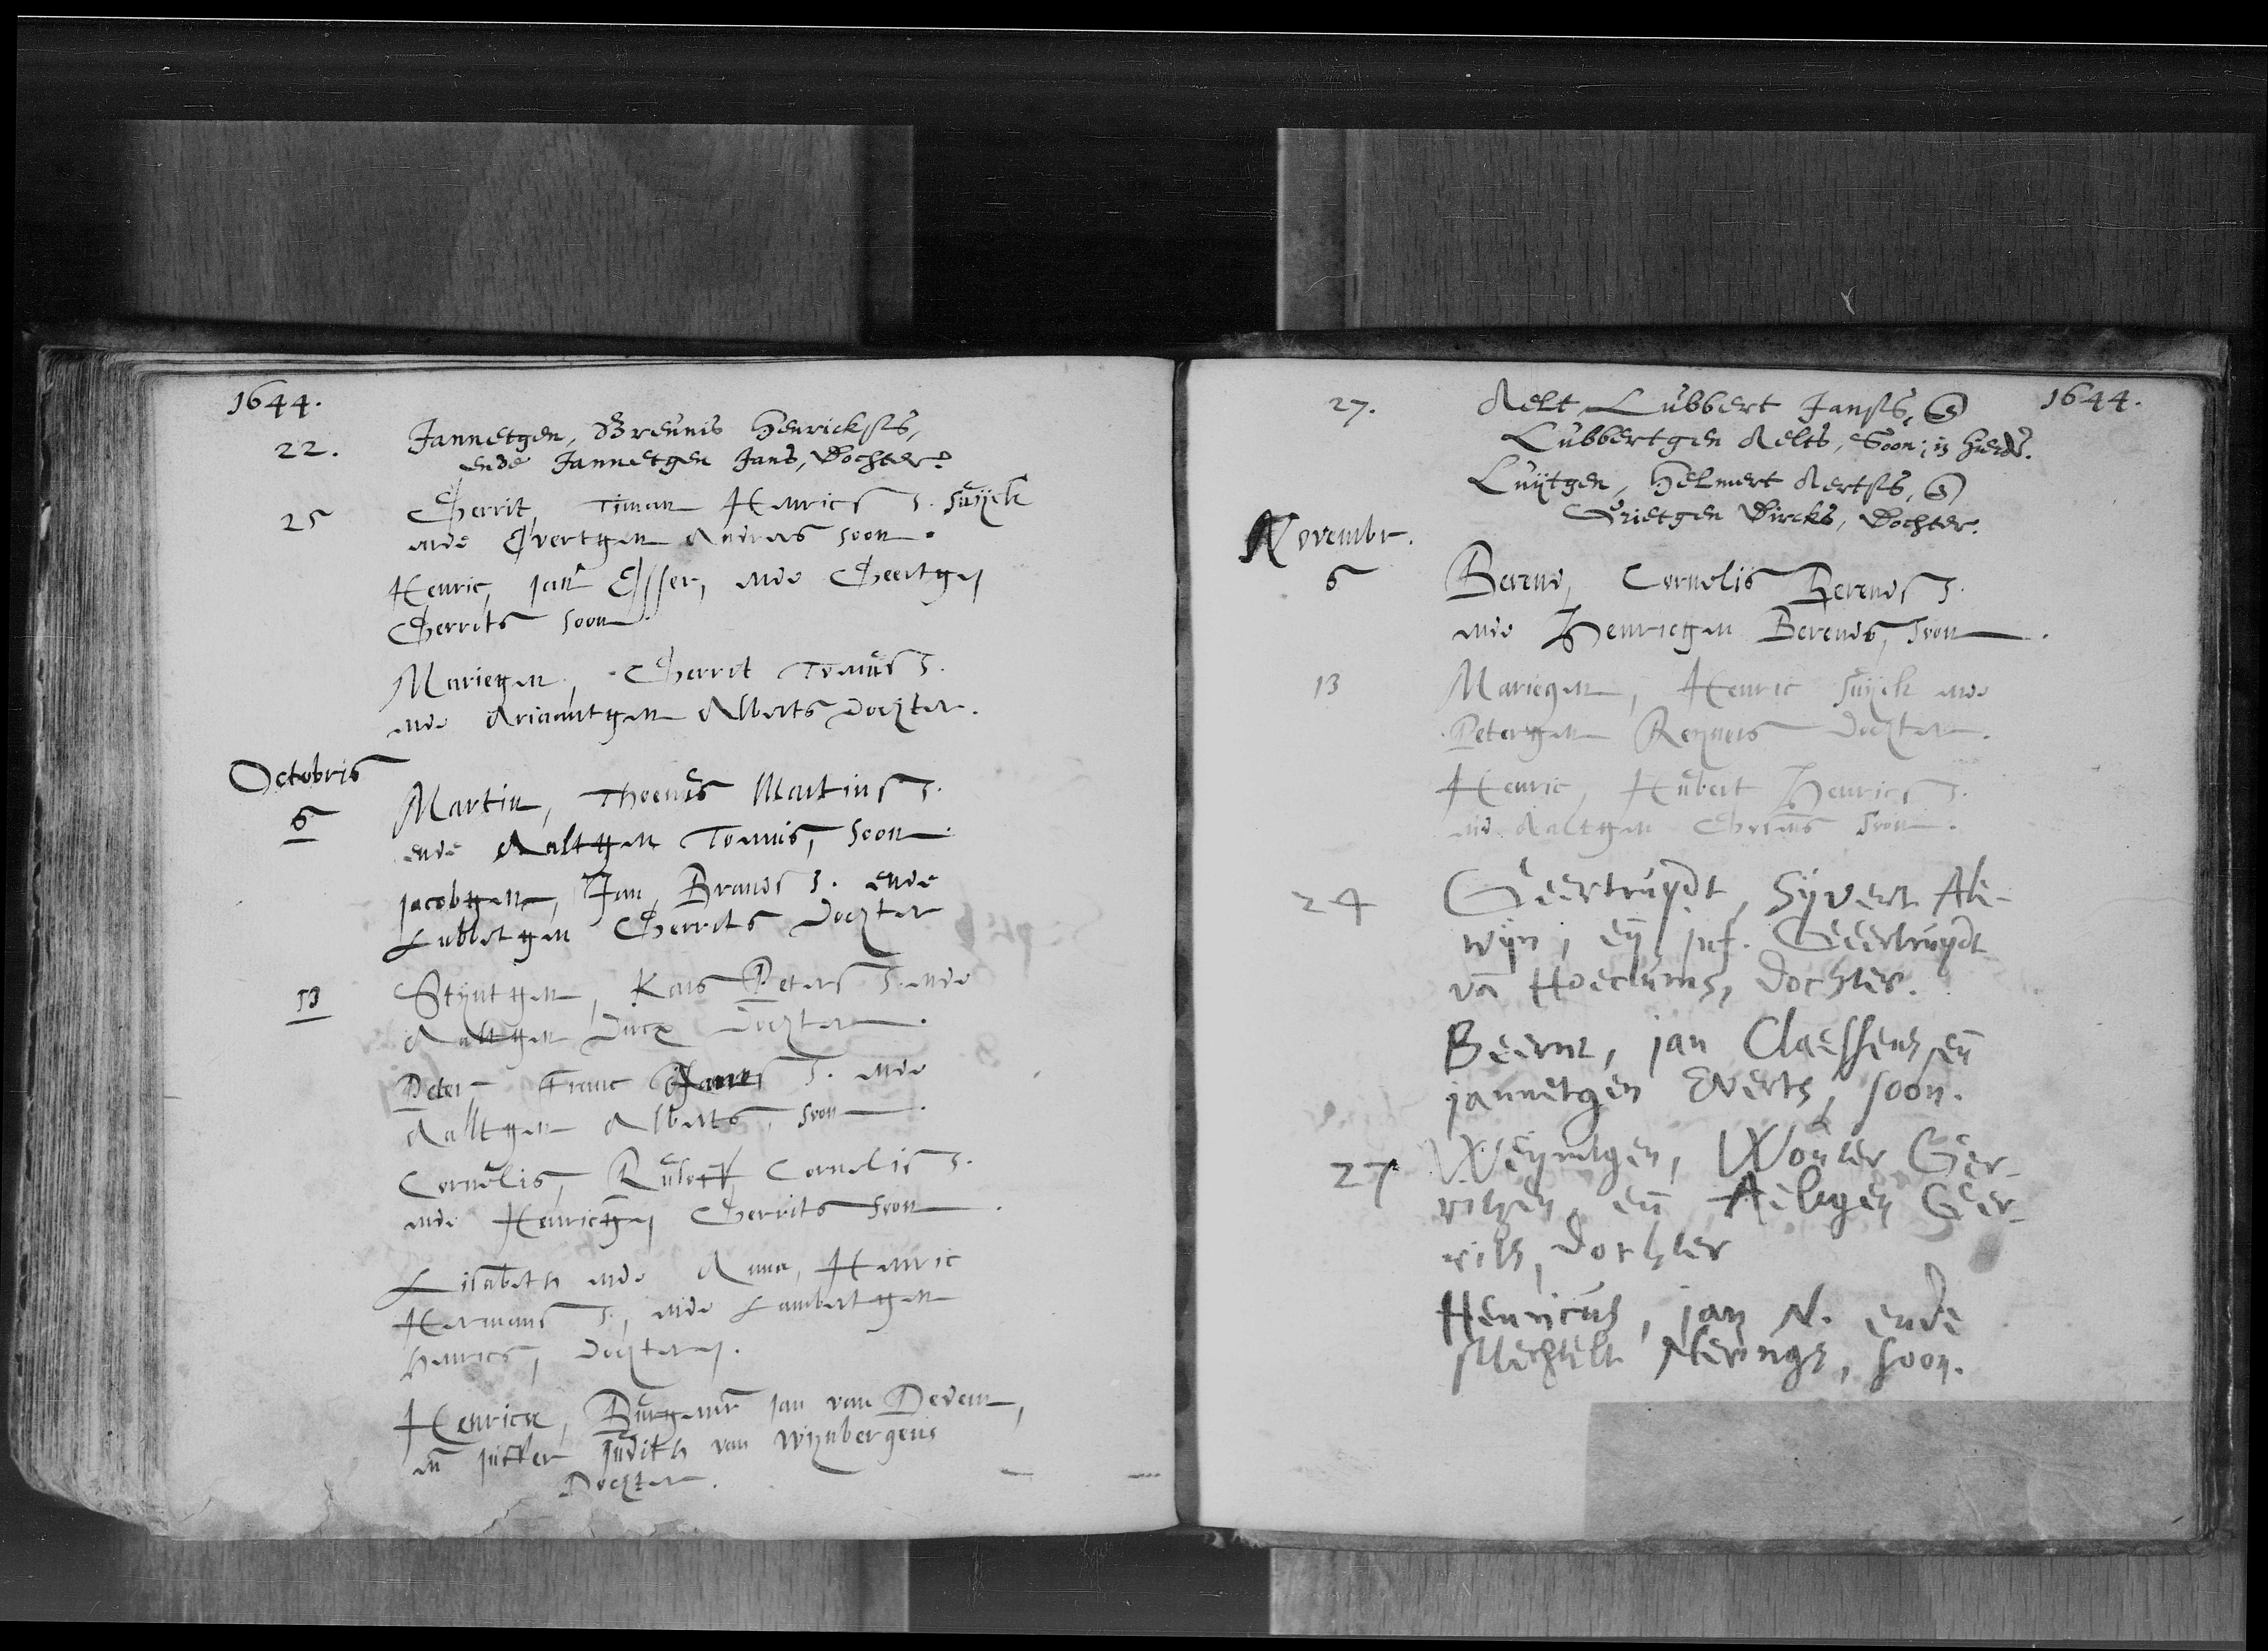 1644.
22. Jannetgen, Breunis Henricksis,
ende Jannetgen Jans, Dochter.
25 Gerrit, Timan Henrics S. suyck
ende Evertgen Andres soon.
Henric, Jan Esser, ende Geertgen
Gerrits soon.
Mariegen, Gerrit Tonus S.
ende Ariaantgen Alberts dochter.
Octobris
6 Martin, Thoenis Martins S.
ende Aaltgen Tonnis, soon.
Jacobgen, Jan Brands S. ende
Lubbetgen Gerrits dochter
13 Styntgen, Peters S. ende
Aaltgen Dirx dochter.
Peter, Franc Jans S. ende
Aaltgen Alberts, soon.
Cornelis, Rutert Cornelis S.
ende Henricgen Gerrits soon.
Lisabeth ende Anna, Henric
Hermans S., ende Lambertgen
Henrics, dochteren.
Henrica, Burgemr Jan van Dedem,
en Juffer Judith van Wijnbergens
Dochter.
27. Aelt, Lubbert Jansis, 1644.
Lubbertgen Aelts, Soon; is
Luytgen, Helmert Aertsis,
Grietgen Dircks, Dochter.
Novembr.
6 Berend, Cornelis Berends S.
ende Henricgen Berends, soon.
13 Mariegen, Henric suyck ende
Petergen Reyners dochter.
Henric, Hubert Henrics S.
end Aaltgen soon.
24 Geertruydt, Sijvert Ale-
wijn, en juf. Geertruydt
va Hoeclums, dochter.
Beernt, jan Claessens en
jannetgen Everts, soon.
27 Weijmtgen, Wouter Ger-
ritzen, en Aeltgen Ger-
rits, dochter
Henricus, jan N. ende
Mechtelt Nevings, soon.